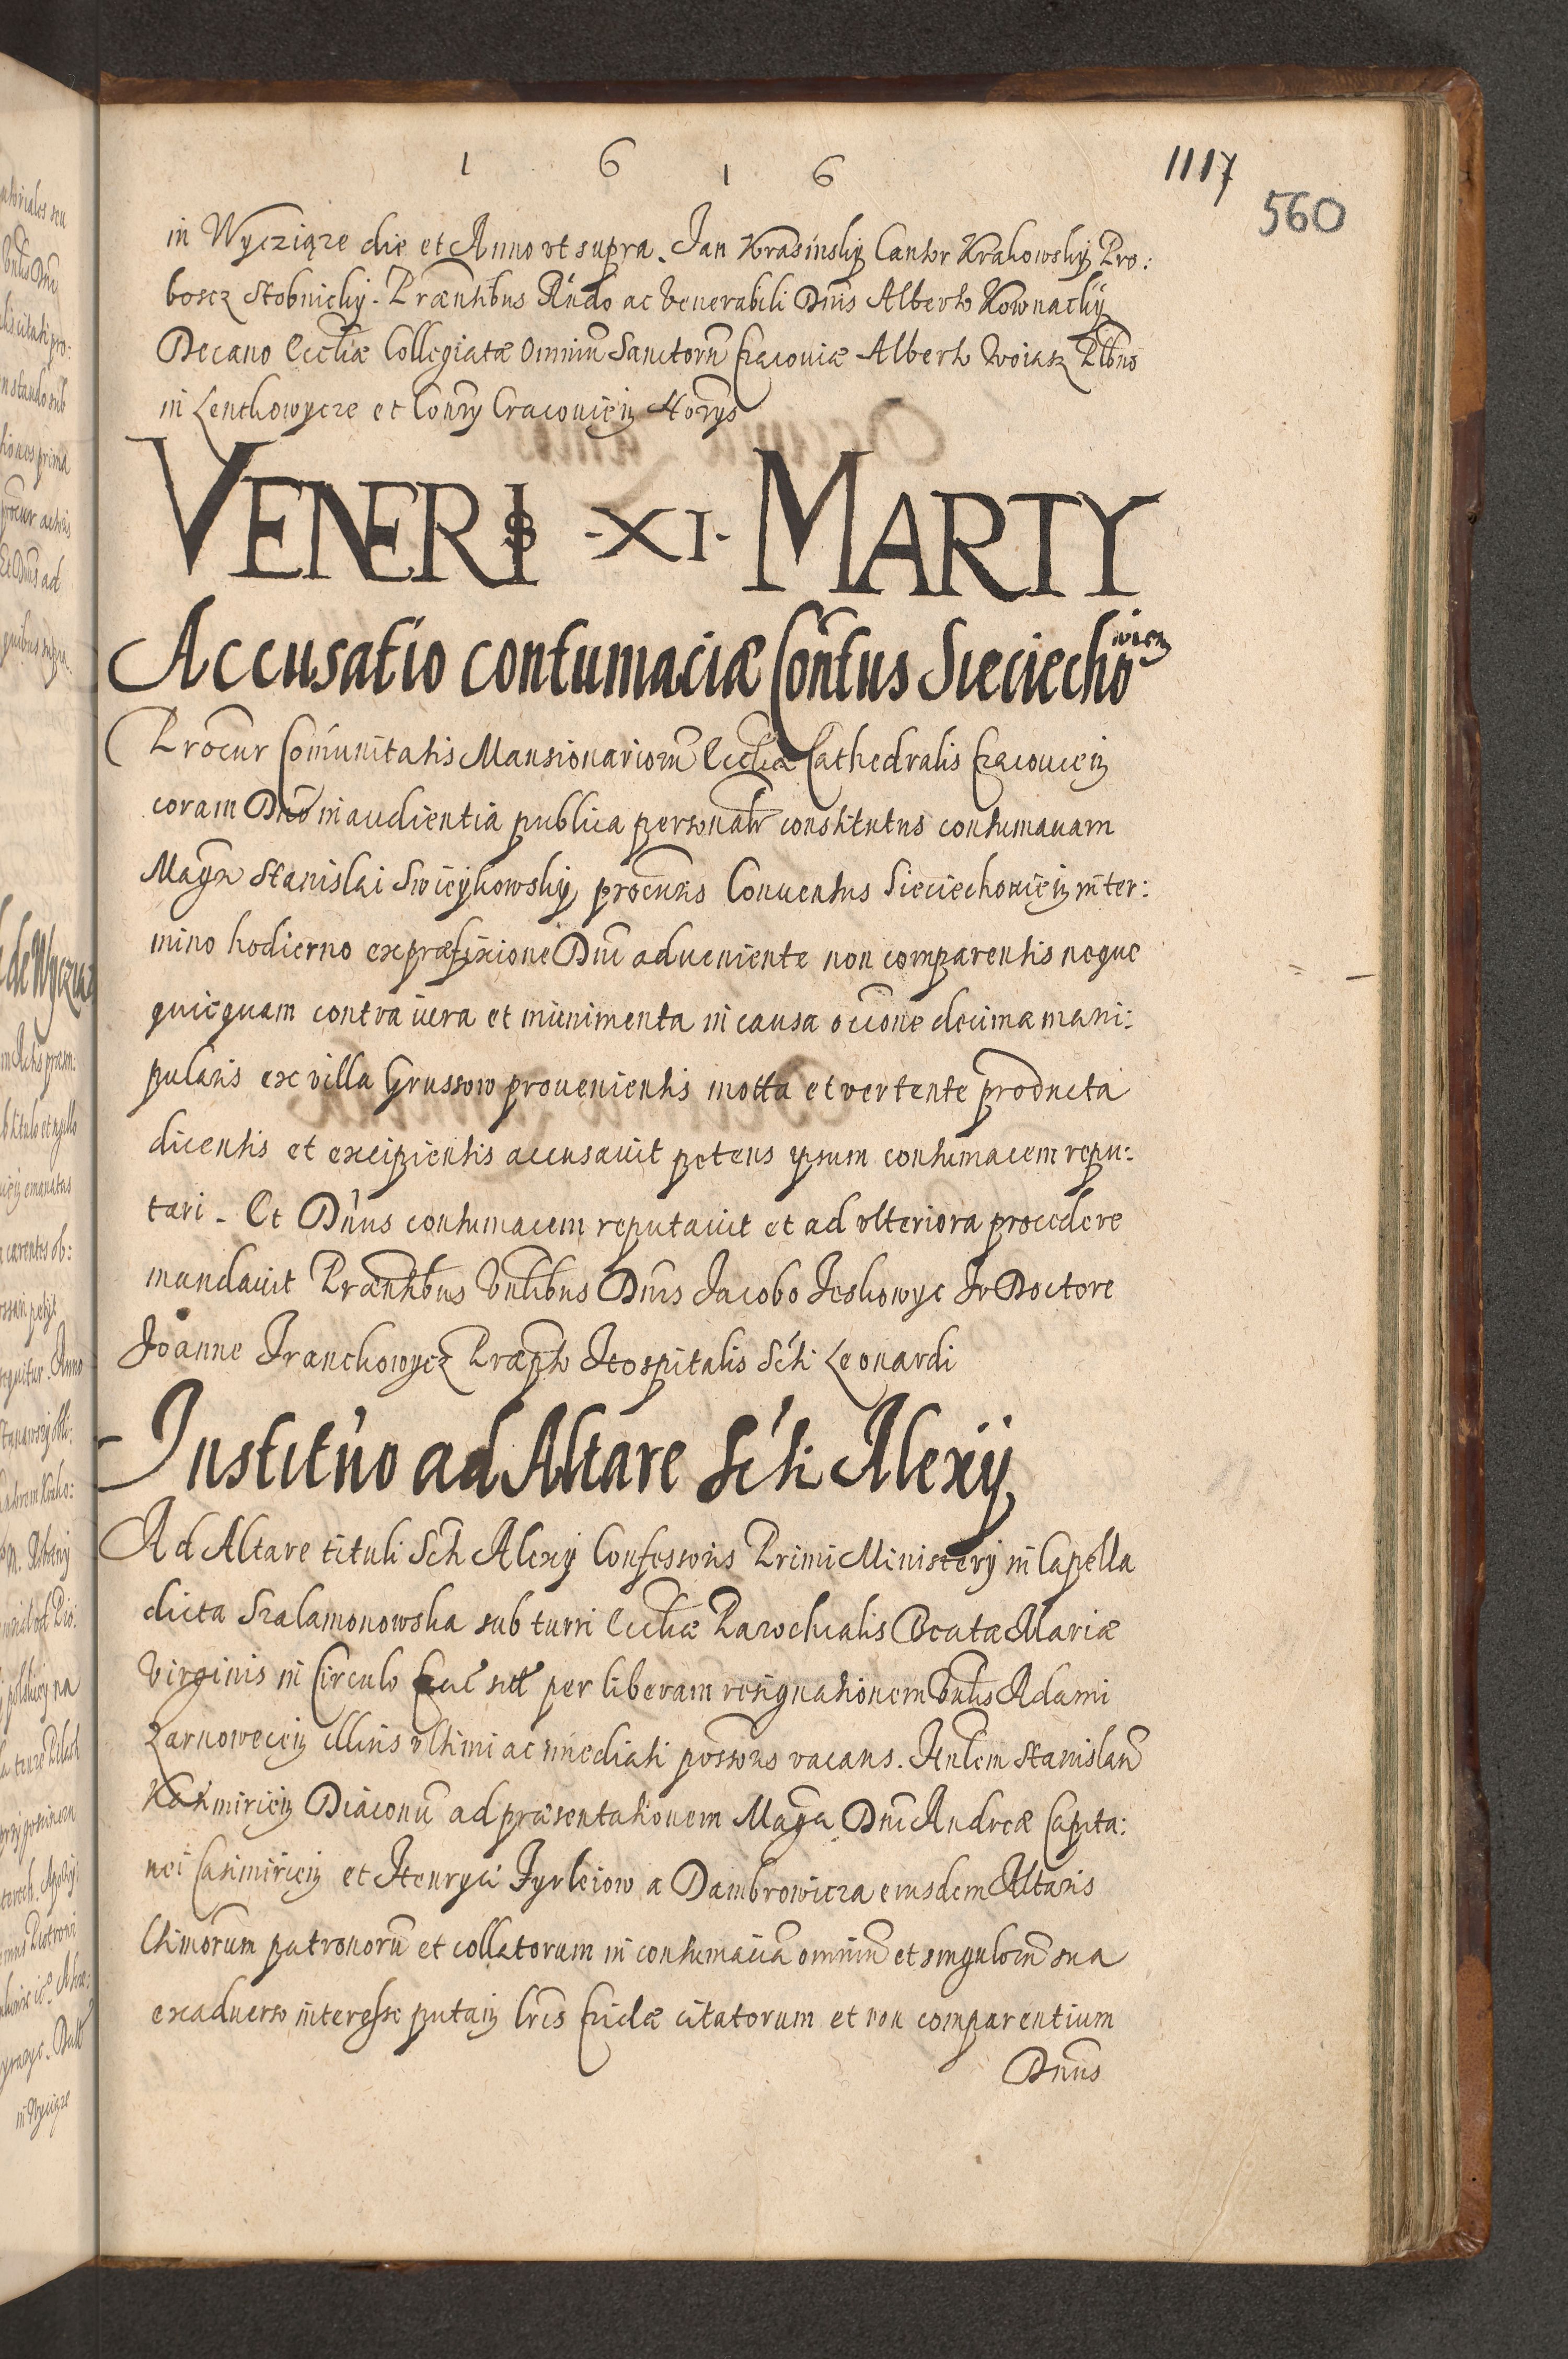 1 6 1 6
1117
560
in Wycziąze die et Anno vt supra. Jan Krasinsky Cantor Krakowsky Pro:
boscz Stobnicky. Præntibus Rñdo ac Venerabili Dnis Alberto Kownacky
Decano Eccliæ Collegiatæ Omniũ Sanctorũ Cracoviæ Alberto Woiasz Plbno
in Lenckowycze et Consry Cracovieñ Norys
VENERIS ·XI· MARTY
Accusatio contumaciæ Contus Sieciechovień
Procur Cõmunitatis Mansionariorũ Eccliæ Cathedralis Cracovieñ
coram Dño in audientia publica personalr constitutus contumaciam
Magri Stanislai Swieykowsky procuris Conventus Sieciechovieñ in ter:
mino hodierno ex præfixione Dni adveniente non comparentis neque
quicquam contra iura et munimenta in causa occõne decimæ mani:
pularis ex villa Grussow provenientis motta et vertente producta
dicentis et excipientis accusavit petens ipsum contumacem repu:
tari. Et Dñus contumacem reputavit et ad vlteriora procedere
mandavit Præntibus Vnlibus Dnis Jacobo Jeskowyc Jv Doctore
Joanne Franckowycz Præpto Hospitalis Scti Leonardi
Institutio ad Altare Scti Alexij
Ad Altare tituli Scti Alexij Confessoris Primi Ministery in Capella
dicta Szalamonowska sub turri Eccliæ Parochialis Beatæ Mariæ
Virginis in Circulo Crac sitt per liberam resignationem Vnlis Adami
Zarnowecieñ illius vltimi ac immediati possoris vacans. Hnlem Stanislaũ
Kazimirieñ Diaconũ ad præsentationem Magcor Dni Andreæ Capita:
nei Casimirieñ et Henryci Fyrleiow a Dambrowicza eiusdem Altaris
lttimorum patronorũ et collatorum in contumaciã omniũ et singulorũ sua
exadverso interesse putañ lris Cridæ citatorum et non comparentium
Dnus